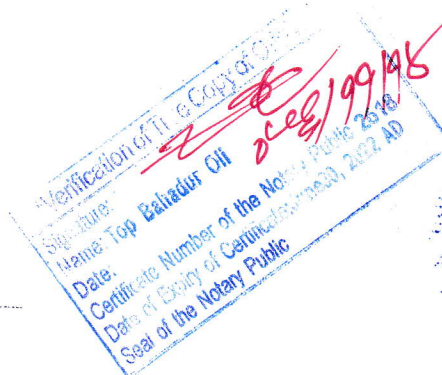 Verification of True Copy of
Signature:
Name: Top Bahadur Oli
Date:
Certificate Number of the Notary Public 2018
Date of Expiry of Certificate 30, 2022 AD
Seal of the Notary Public